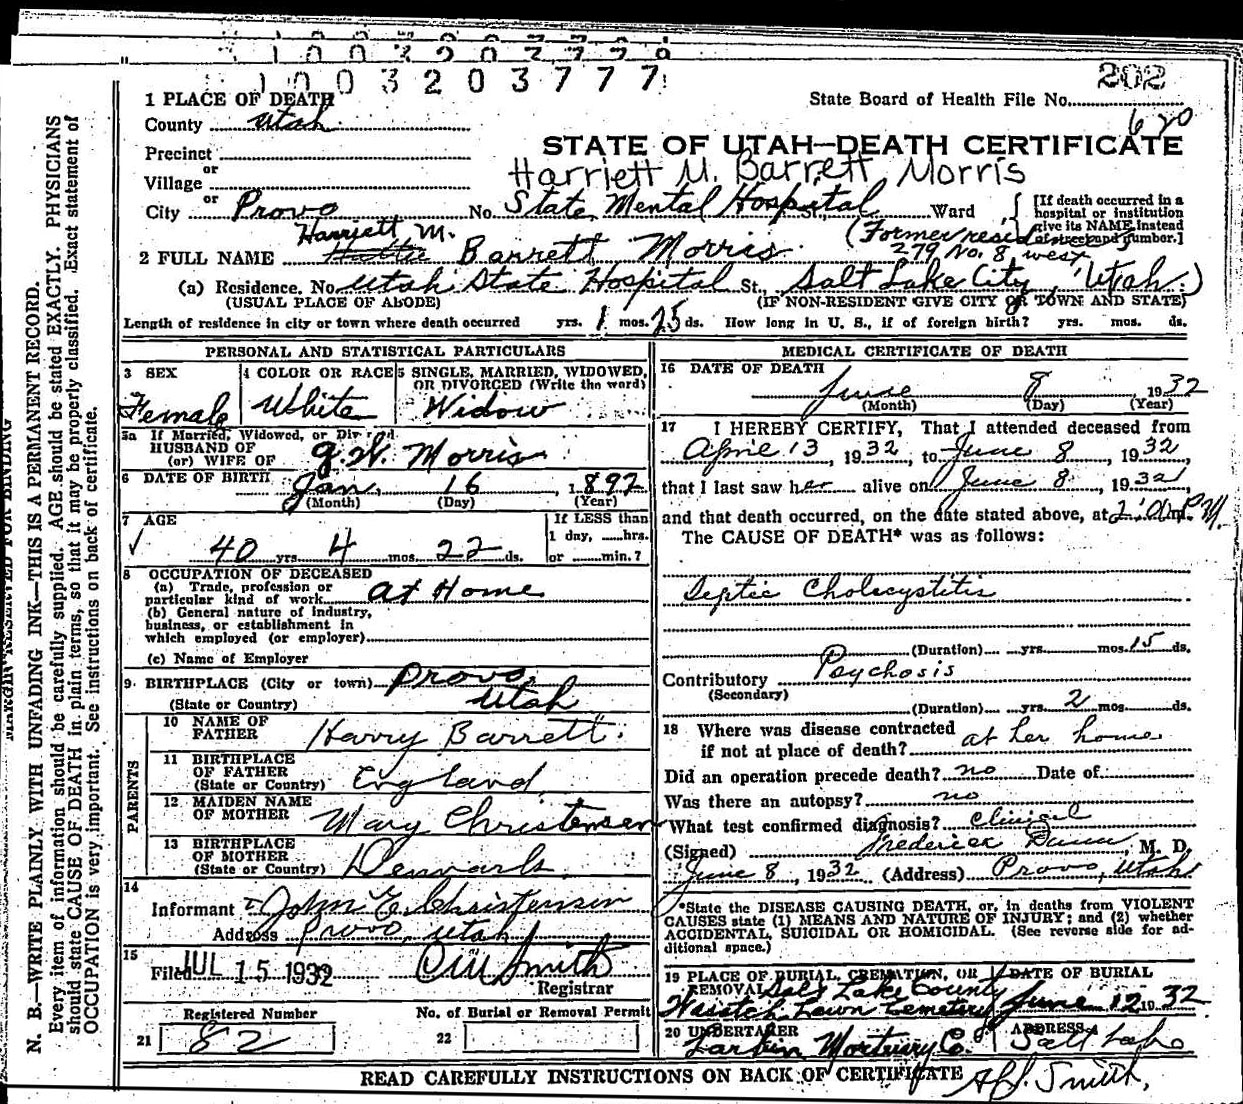 1003203777
202
1 PLACE OF DEATH
State Board of Health File No.
620
County Utah
STATE OF UTAH—DEATH CERTIFICATE
Precinct
or
Harriett M. Barrett Morris
Village
or
City Provo No. State Mental Hospital St., Ward
[If death occurred in a hospital or institution give its NAME instead of street and number.]
Harriett M.
(Former resid
279 No. 8 west
2 FULL NAME Hattie Barrett Morris
(a) Residence. No. Utah State Hospital St., Salt Lake City, Utah.)
(USUAL PLACE OF ABODE) (IF NON-RESIDENT GIVE CITY OR TOWN AND STATE)
Length of residence in city or town where death occurred yrs. 1 mos. 25 ds. How long in U. S., if of foreign birth? yrs. mos. ds.
PERSONAL AND STATISTICAL PARTICULARS
3 SEX
Female
4 COLOR OR RACE
White
5 SINGLE, MARRIED, WIDOWED, OR DIVORCED (Write the word)
Widow
5a If Married, Widowed, or Divorced
HUSBAND OF
(or) WIFE OF J. W. Morris
6 DATE OF BIRTH Jan. 16, 1892
(Month) (Day) (Year)
7 AGE
If LESS than
1 day, hrs.
or min.?
✓ 40 yrs. 4 mos. 22 ds.
8 OCCUPATION OF DECEASED
(a) Trade, profession or
particular kind of work at Home
(b) General nature of industry,
business, or establishment in
which employed (or employer)
(c) Name of Employer
9 BIRTHPLACE (City or town) Provo,
(State or Country) Utah
PARENTS
10 NAME OF FATHER Harry Barrett.
11 BIRTHPLACE OF FATHER (State or Country) England
12 MAIDEN NAME OF MOTHER Mary Christensen
13 BIRTHPLACE OF MOTHER (State or Country) Denmark.
14
Informant John E. Christensen
Address Provo, Utah
15
Filed JUL 15 1932
Smith
Registrar
Registered Number
21 82
No. of Burial or Removal Permit
22
MEDICAL CERTIFICATE OF DEATH
16 DATE OF DEATH
June 8 1932
(Month) (Day) (Year)
17 I HEREBY CERTIFY, That I attended deceased from
April 13, 1932, to June 8, 1932,
that I last saw her alive on June 8, 1932,
and that death occurred, on the date stated above, at P.M.
The CAUSE OF DEATH* was as follows:
Septic Cholecystitis
(Duration) yrs. mos. 15 ds.
Contributory Psychosis
(Secondary)
(Duration) yrs. 2 mos. ds.
18 Where was disease contracted
if not at place of death? at her home
Did an operation precede death? no Date of:
Was there an autopsy? no
What test confirmed diagnosis? Clinical
(Signed) Frederick Dunn, M. D.
June 8, 1932 (Address) Provo, Utah
*State the DISEASE CAUSING DEATH, or, in deaths from VIOLENT
CAUSES state (1) MEANS AND NATURE OF INJURY; and (2) whether
ACCIDENTAL, SUICIDAL OR HOMICIDAL. (See reverse side for ad-
ditional space.)
19 PLACE OF BURIAL, CREMATION, OR REMOVAL
Salt Lake County
Wasatch Lawn Cemetery
DATE OF BURIAL
June 12 1932
20 UNDERTAKER
Larkin Mortuary Co.
ADDRESS
Salt Lake
READ CAREFULLY INSTRUCTIONS ON BACK OF CERTIFICATE
Smith.
MARGIN RESERVED FOR BINDING
N. B.—WRITE PLAINLY, WITH UNFADING INK—THIS IS A PERMANENT RECORD.
Every item of information should be carefully supplied. AGE should be stated EXACTLY. PHYSICIANS
should state CAUSE OF DEATH in plain terms, so that it may be properly classified. Exact statement of
OCCUPATION is very important. See instructions on back of certificate.